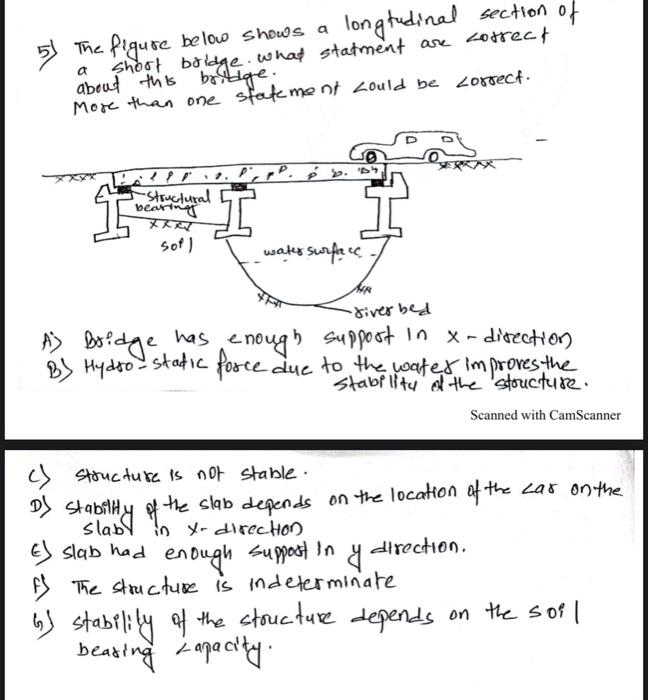 5) The figure below shows a longtudinal section of
a short bridge. what statment are correct
about this bridge.
More than one statement could be correct.
D D
Structural
bearing
soil
water surface
river bed
A) Bridge has enough support in x-direction
B) Hydro-static force due to the water improves the
stability of the structure.
Scanned with CamScanner
C) Structure is not stable.
D) Stability of the slab depends on the location of the car on the
slab in x-direction
E) slab had enough support in y direction.
F) The structure is indeterminate
G) stability of the structure depends on the soil
bearing capacity.